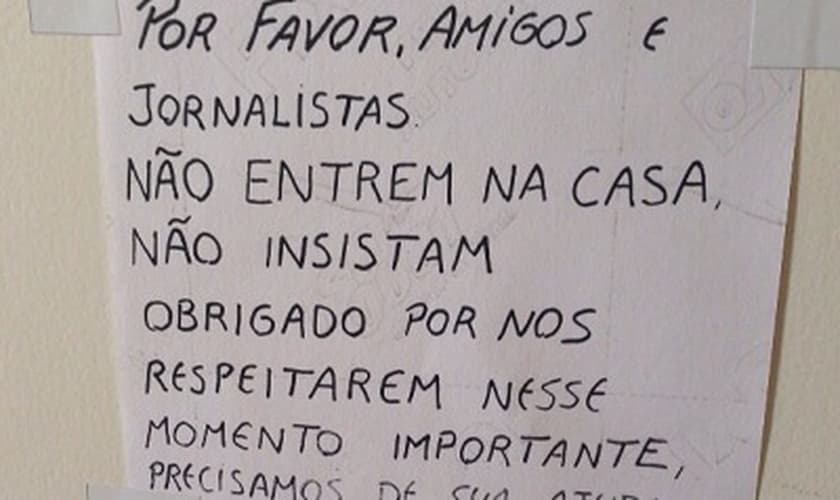 POR FAVOR, AMIGOS E
JORNALISTAS.
NÃO ENTREM NA CASA,
NÃO INSISTAM
OBRIGADO POR NOS
RESPEITAREM NESSE
MOMENTO IMPORTANTE,
PRECISAMOS DE SUA